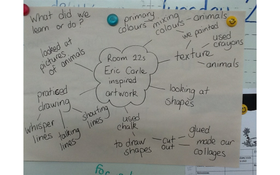 What did we
learn or do?
primary
colours
mixing
colours
animals
we painted
used
crayons
texture
animals
looked at
pictures
of
animals
Room 22s
Eric Carle
inspired
artwork
looking at
shapes
practiced
drawing
whisper
lines
talking
lines
shouting
lines
used
chalk
to draw
shapes
cut
out
glued
made our
collages